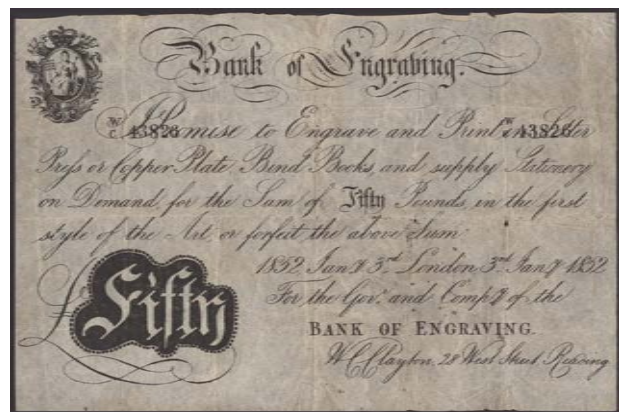 Bank of Engraving.
W/C 43826 W/C 43826
I Promise to Engrave and Print in Letter
Press or Copper Plate, Bind Books, and supply Stationery
on Demand, for the Sum of Fifty Pounds, in the first
style of the Art, or forfeit the above Sum.
1852 Jany 3rd London 3rd Jany 1852
For the Govr and Compy of the
£Fifty
BANK OF ENGRAVING.
W C Clayton, 28 West Street, Reading